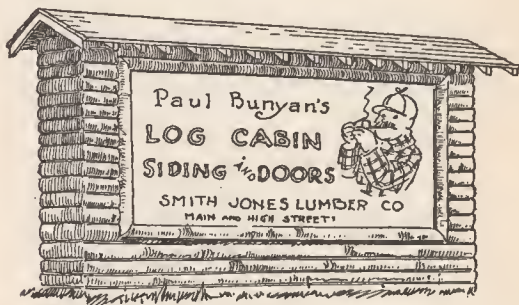 Paul Bunyan's
LOG CABIN
SIDING AND DOORS
SMITH JONES LUMBER CO
MAIN AND HIGH STREETS